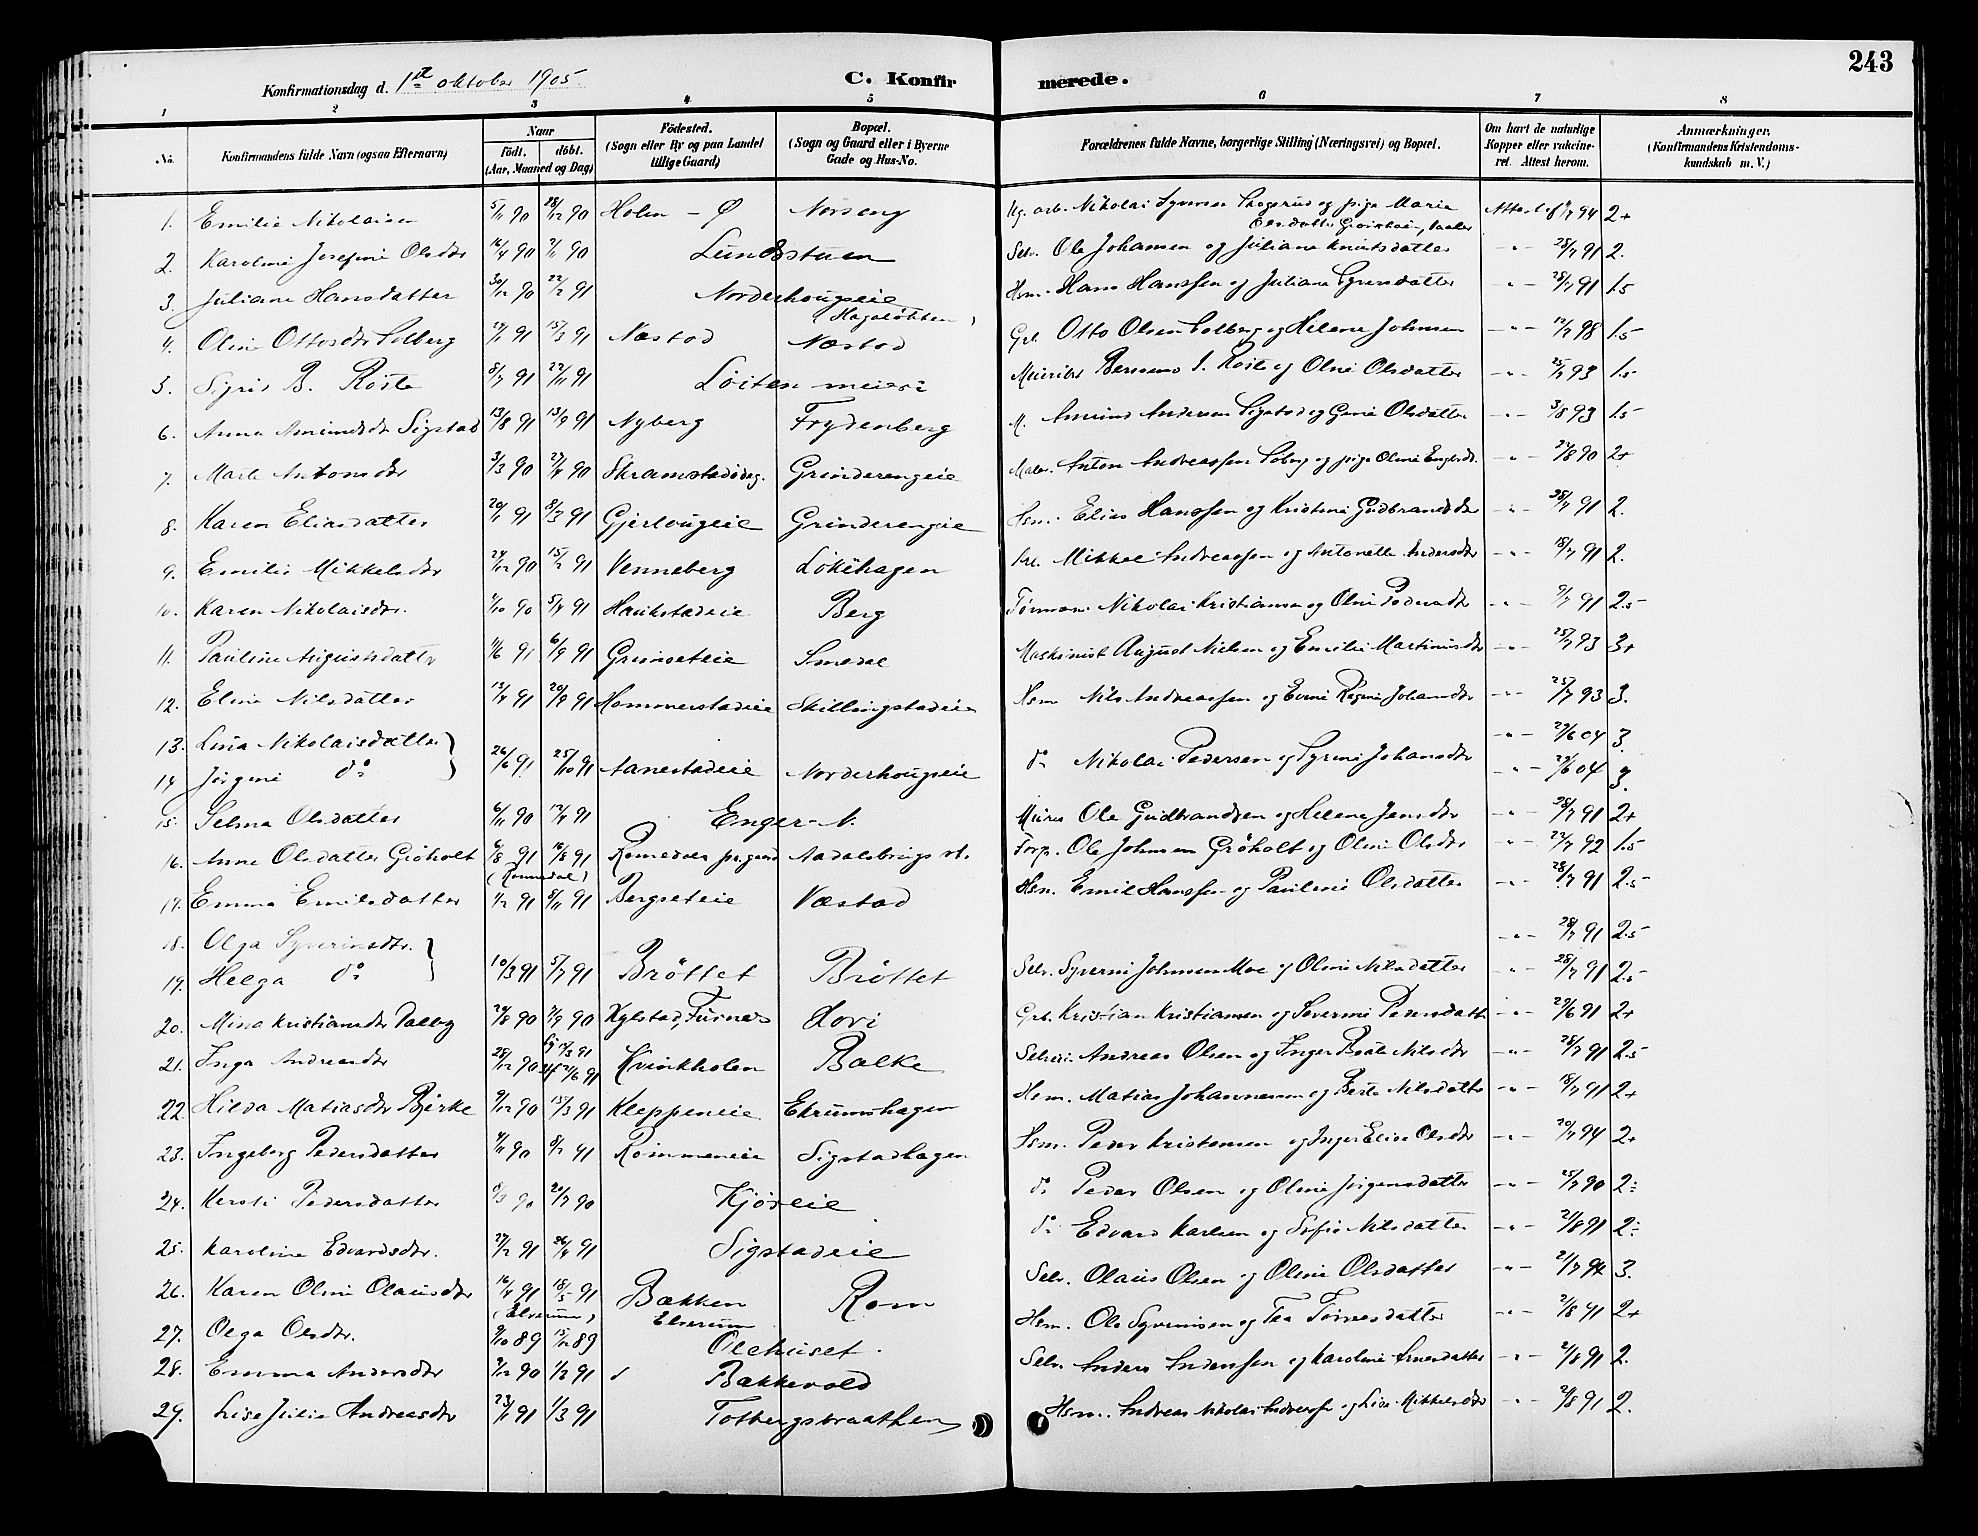 243
Konfirmationsdag d. 1ste oktober 1905.
C. Konfirmerede.
1 2 3 4 5 6 7 8
No. Konfirmandens fulde Navn (ogsaa Efternavn) Naar födt. döbt. (Aar, Maaned og Dag) Födested. (Sogn eller By og paa Landet tillige Gaard) Bopæl. (Sogn og Gaard eller i Byerne Gade og Hus-No. Forældrenes fulde Navne, borgerlige Stilling (Næringsvei) og Bopæl. Om havt de naturlige Kopper eller vaccineret. Attest herom. Anmærkninger. (Konfirmandens Kristendomskundskab m. V.)
1. Emilie Nikolaisen 5/11 90 28/12 90 Holen - Ø Norseng Nikolai Syversen Skogerus og pige Maria 94 2+
2. Karoline Josefine Olsdtr 16/9 90 90 Lundsstuen Selv. Ole Johansen og Juliane Knutsdatter -"- 28/7 91 2.
3. Juliane Hansdatter 30/12 90 22/2 91 Norderhougseie Hsm. Hans Hanssen og Juliane Syversdatter -"- 28/7 91 1.5
(Hagaløkken)
4. Oline Ottosdtr Solberg 91 15/3 91 Næstad Næstad Otto Olsen Solberg og Helene Johnsen -"- 12/7 98 1.5
5. Sigrid B. Röste 8/7 91 22/11 91 Löiten meieri Bernt J. Röste og Oline Olsdatter -"- 25/7 93 1.5
6. Anna Amundsdtr Sigstad 13/8 91 13/9 91 Nyberg Frydenberg Amund Andersen Sigstad og Olsdatter -"- 3/8 93 1.5
7. Marte Antonsdtr 3/3 90 27/4 90 Grinderengeie Maler. Anton Andreassen Soberg og pige Oline -"- 8 90 2+
8. Karen Eliasdatter 20/1 91 8/3 91 Gjerlougeie Grinderengeie Hsm. Elias Hanssen og Kristine Gudbrandsdtr -"- 28/7 91 2.
9. Emilie Mikkelsdtr 24/12 90 15/2 91 Venneberg Lökihagen Mikkel Andreassen og Antonette Andersdtr -"- 18/7 91 2.
10. Karen Nikolaisdtr. 90 5/4 91 Haukstadeie Berg Nikolai Kristiansen og Oline Pedersdtr -"- 91 2.5
11. Pauline Augustsdatter 91 6/9 91 Grimseteie Smedal Maskinist August Nielsen og Emilie Martinusdtr -"- 25/7 93 3+
12. Eline Nilsdatter 91 20/9 91 Hommerstadeie Skillingstadeie Hsm Nils Andreassen og Johansdtr -"- 25/7 93 3.
13. Lina Nikolaisdatter -"- 29/6 04 3.
14 Jörgine do 26/6 91 25/10 91 Aanestadeie Norderhougseie do Nikolai Pedersen og Syrine Johansdtr -"- 29/6 04 3.
15. Selma Olsdatter 6/11 90 12/4 91 Enger N. Murer Ole Gudbrandsen og Helene Jensdtr -"- 28/7 91 2+
16. Anne Olsdatter Gröholt 6/8 91 16/8 91 Romedal prgaard Aadalsbrugs st. Forp. Ole Johnsen Gröholt og Oline Olsdtr -"- 22/7 92 1.5
(Romedal)
17. Emma Emilsdatter 91 8/11 91 Bergseteie Næstad Hsm. Emil Hanssen og Pauline Olsdatter -"- 28/7 91 2.5
18. Olga Syverinsdtr. -"- 28/7 91 2.5
19. Helga do 10/3 91 5/7 91 Bröttet Bröttet Selv. Syverin Johnsen Moe og Oline Nilsdatter -"- 28/7 91 2.5
20. Mina Kristiansdtr Dalby 24/8 90 90 Kylstad, Furnes Hovi Kristian Kristiansen og Severine Pedersdatter -"- 29/6 91 2+
21. Inga Andreasdtr 28/12 90 91 Kvinkholen Balke Andreas Olsen og Inger Beate Nilsdtr -"- 28/7 91 2.5
22. Hilda Matiasdtr Bjerke 9/12 90 15/3 91 Kleppeneie Ekrumshagen Hsm. Matias Johannessen og Berte Nilsdatter -"- 18/7 91 2+
23. Ingeborg Pedersdatter 90 8/2 91 Rommeneie Sigstadhagen Hsm. Peder Kristensen og Inger Elise Olsdtr -"- 94 2+
24. Kersti Pedersdatter 90 20/7 90 Kjöseie do Peder Olsen og Oline Jörgensdatter -"- 25/7 90 2÷
25. Karoline Edvardsdtr. 27/2 91 26/4 91 Sigstadeie do Edvard Karlsen og Sofie Nilsdatter -"- 21/8 91 2÷
26. Karen Oline Olausdtr 16/4 91 18/5 91 Bækken Rom Selv. Olaus Olsen og Oline Olsdatter -"- 21/7 94 3.
(Elverum) Elverum
27. Olga Olsdtr. 9/10 89 15/12 89 Olehuset Hsm. Ole Syverinsen og Tea Törresdatter -"- 2/8 91 2+
28. Emma Andersdtr 90 91 Bækkevold Selv. Anders Andersen og Karoline Arnesdatter -"- 2/8 91 2.
29. Lise Julie Andreasdtr 23/1 91 1/3 91 Totbergsbraathen Hsm. Andreas Nikolai Andreassen og Lise Mikkelsdtr -"- 2/8 91 2.